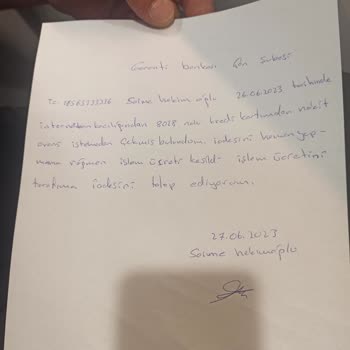 Garanti bankası Çan Şubesi
Tc Salime hekimoğlu 26.06.2023 tarihinde
internetbankacılığından 8018 nolu kredi kartımdan nakit
avans istemeden Çekmiş bulundum. iadesini hemen yap-
mama rağmen işlem ücreti kesildi. işlem ücretini
tarafıma iadesini talep ediyorum.
27.06.2023
Salime hekimoğlu